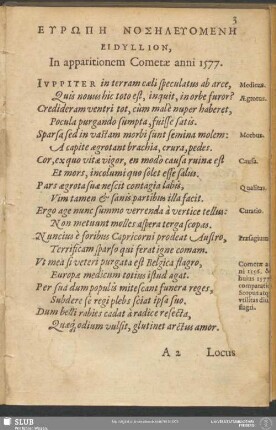 3
ΕΥΡΩΠΗ ΝΟΣΗΛΕΥΟΜΕΝΗ
ΕΙΔΥΛΛΙΟΝ,
In apparitionem Cometæ anni 1577.
IVPPITER in terram cæli speculatus ab arce, Medicus.
Quis nouus hic toto est, inquit, in orbe furor? Ægrotus.
Credideram ventri tot, cùm malè nuper haberet,
Pocula purgando sumpta, fuisse satis.
Sparsa sed in vastam morbi sunt semina molem: Morbus.
A capite ægrotant brachia, crura, pedes.
Cor, ex quo vitæ vigor, en modò causa ruinæ est Causa.
Et mors, incolumi quo solet esse salus.
Pars ægrota sua nescit contagia labis, Qualitas
Vim tamen & sanis partibus illa facit.
Ergo age nunc summo verrenda à vertice tellus: Curatio.
Non metuunt molles aspera terga scopas.
Nuncius è foribus Capricorni prodeat Austro, Præsagium
Terrificam sparso qui ferat igne comam.
Vt mea si veteri purgata est Belgica flagro, Cometæ
Europæ medicum totius istud agat.
Per sua dum populus mitescant funera reges, comparatio
Subdere se regi plebs sciat ipsa suo.
Dum belli rabies cadat à radice resecta,
Quæq́; odium vulsit, glutinet arctus amor.
A 2 Locus
SLUB